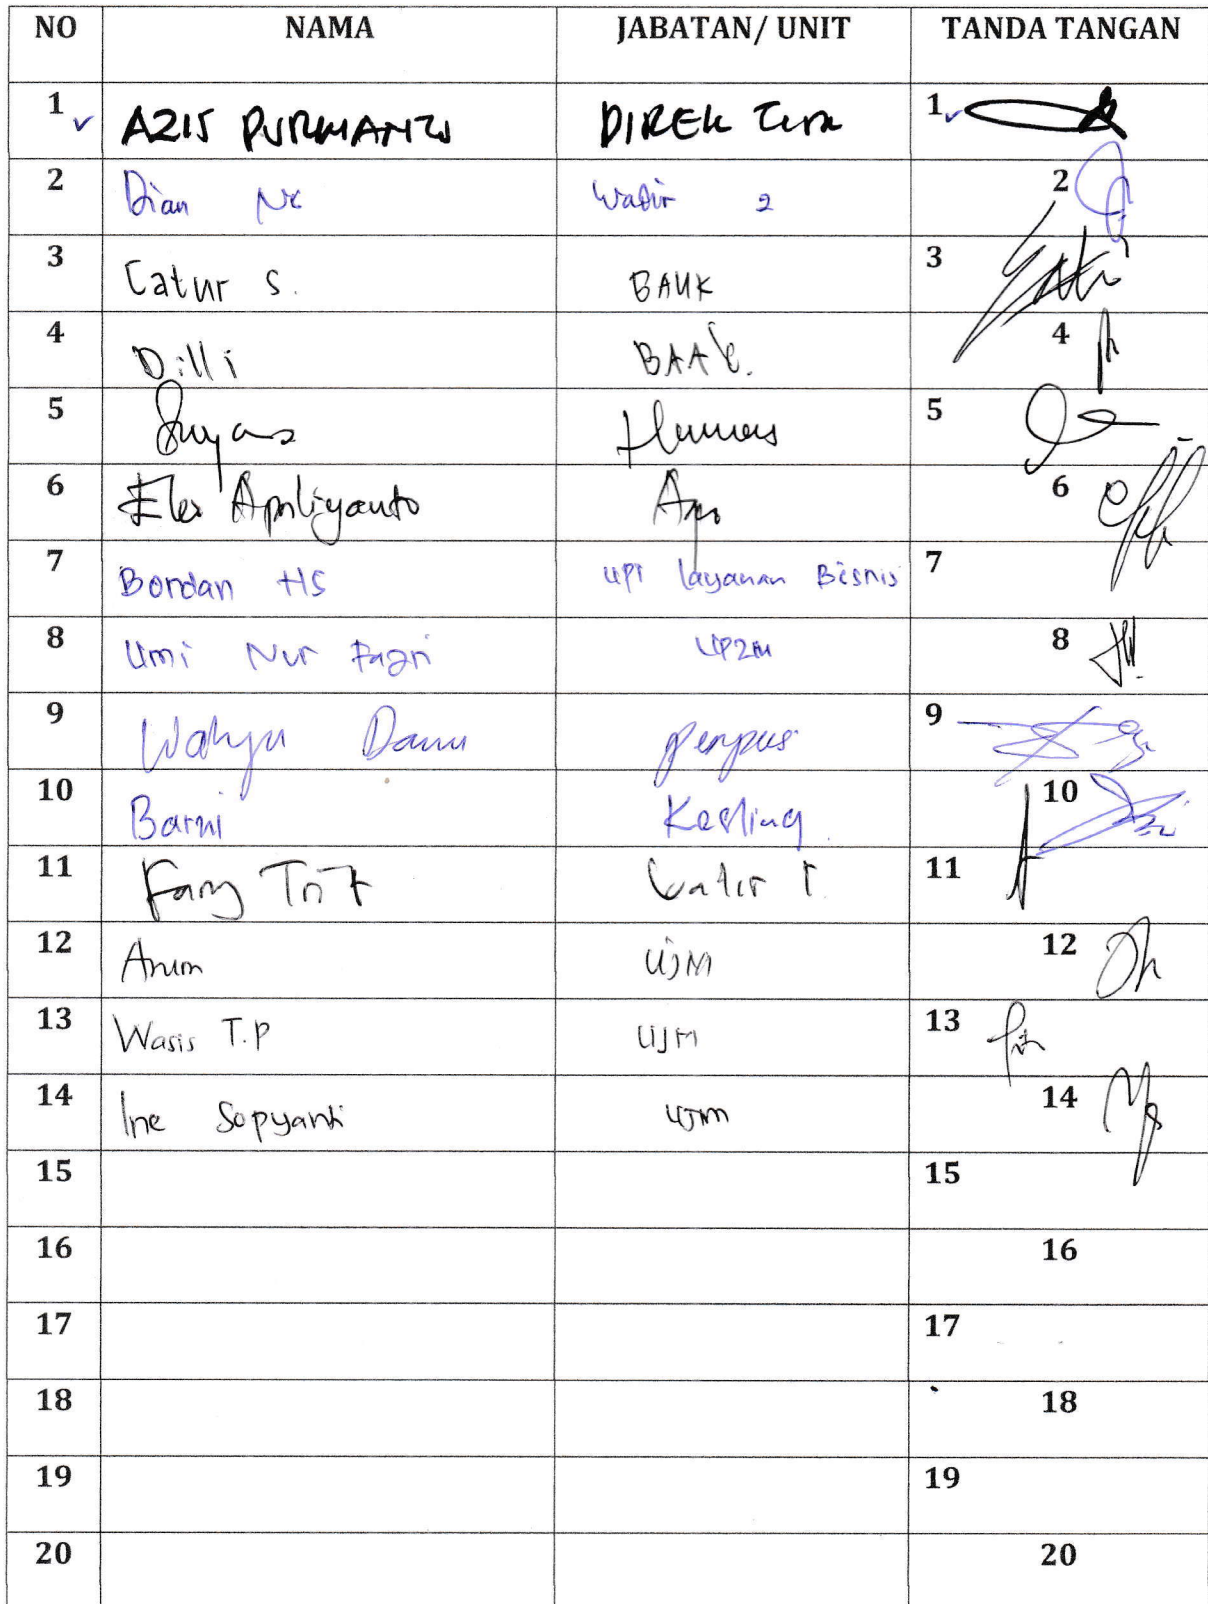 NO NAMA JABATAN/ UNIT TANDA TANGAN
1 AZIS PURWANTO DIREKTUR 1
2 Dian Wadir 2 2
3 Catur S. BAUK 3
4 Dilli BAAK. 4
5 Suyans Humas 5
6 Eko Apriliyanto 6
7 Bordan HS UPT layanan Bisnis 7
8 Umi Nur Fajri UP2M 8
9 Wahyu Danu perpus 9
10 Barni Kesling 10
11 Fany Tri Wadir 1. 11
12 Arum UJM 12
13 Wasis T.P UJM 13
14 Ine Sopyanti UJM 14
15 15
16 16
17 17
18 18
19 19
20 20